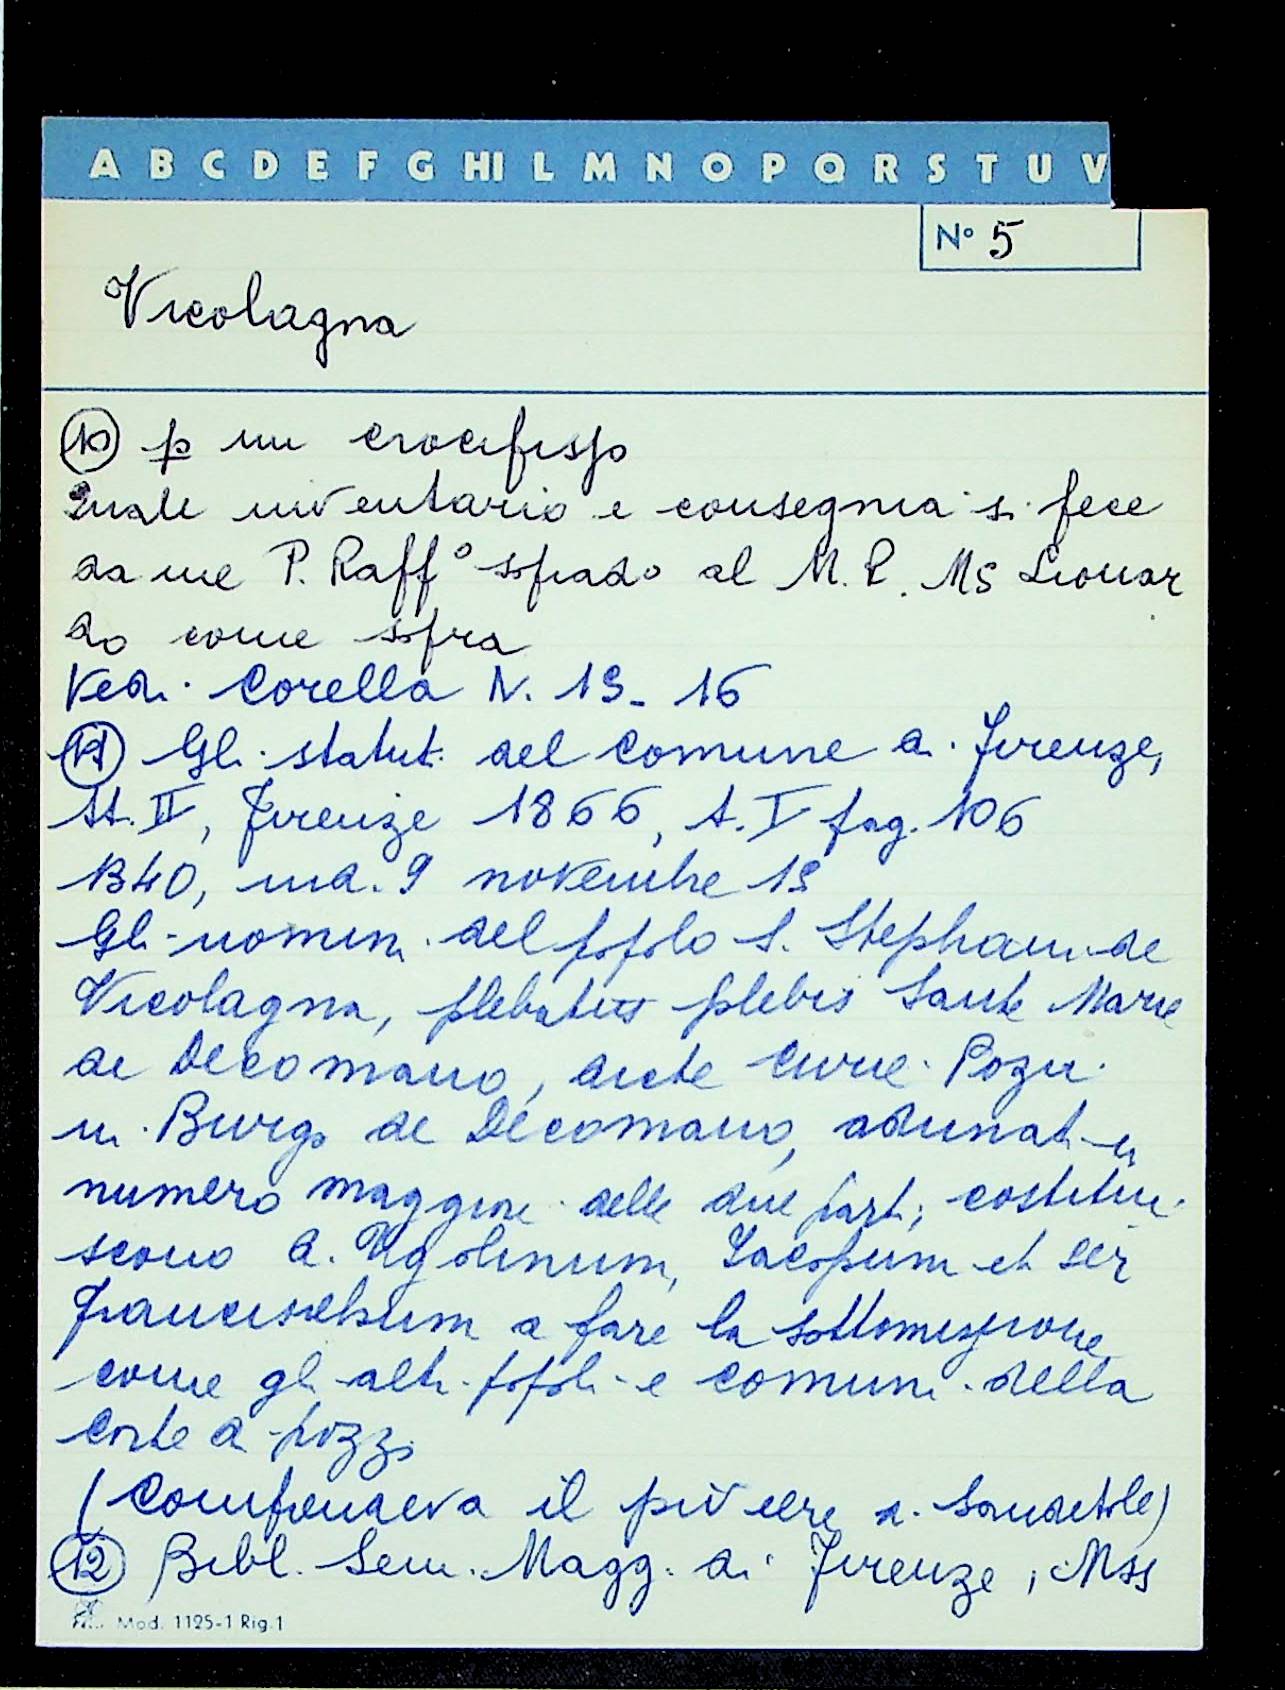 A B C D E F G HI L M N O P Q R S T U V
N° 5
Vicolagna
10 p un crocifisso
Quale inventario e consegnia si fece
da me P. Raff° spado al M. R. Ms Lionar
do come sopra
Vedi Corella N. 15-16
11 Gli statuti del Comune di Firenze,
st. II, Firenze 1866, t. I pag. 106
1340, ind. 9 novembre 15
Gli uomini del popolo S. Stephani de
Vicolagna, plebatus plebis Sante Marie
de Decomano, dicte curie Pozii
in Burgo de Decomano, adunati in
numero maggiore delle due parti; costitui
scono d. Ugolinum, Iacopum et Ser
Francischum a fare la sottomissione
come gli altri popoli e comuni della
Corte di Pozzo
(Comprendeva il piviere di Sandetole)
12 Bibl. Sem. Magg. di Firenze, Mss
Mod. 1125-1 Rig.1